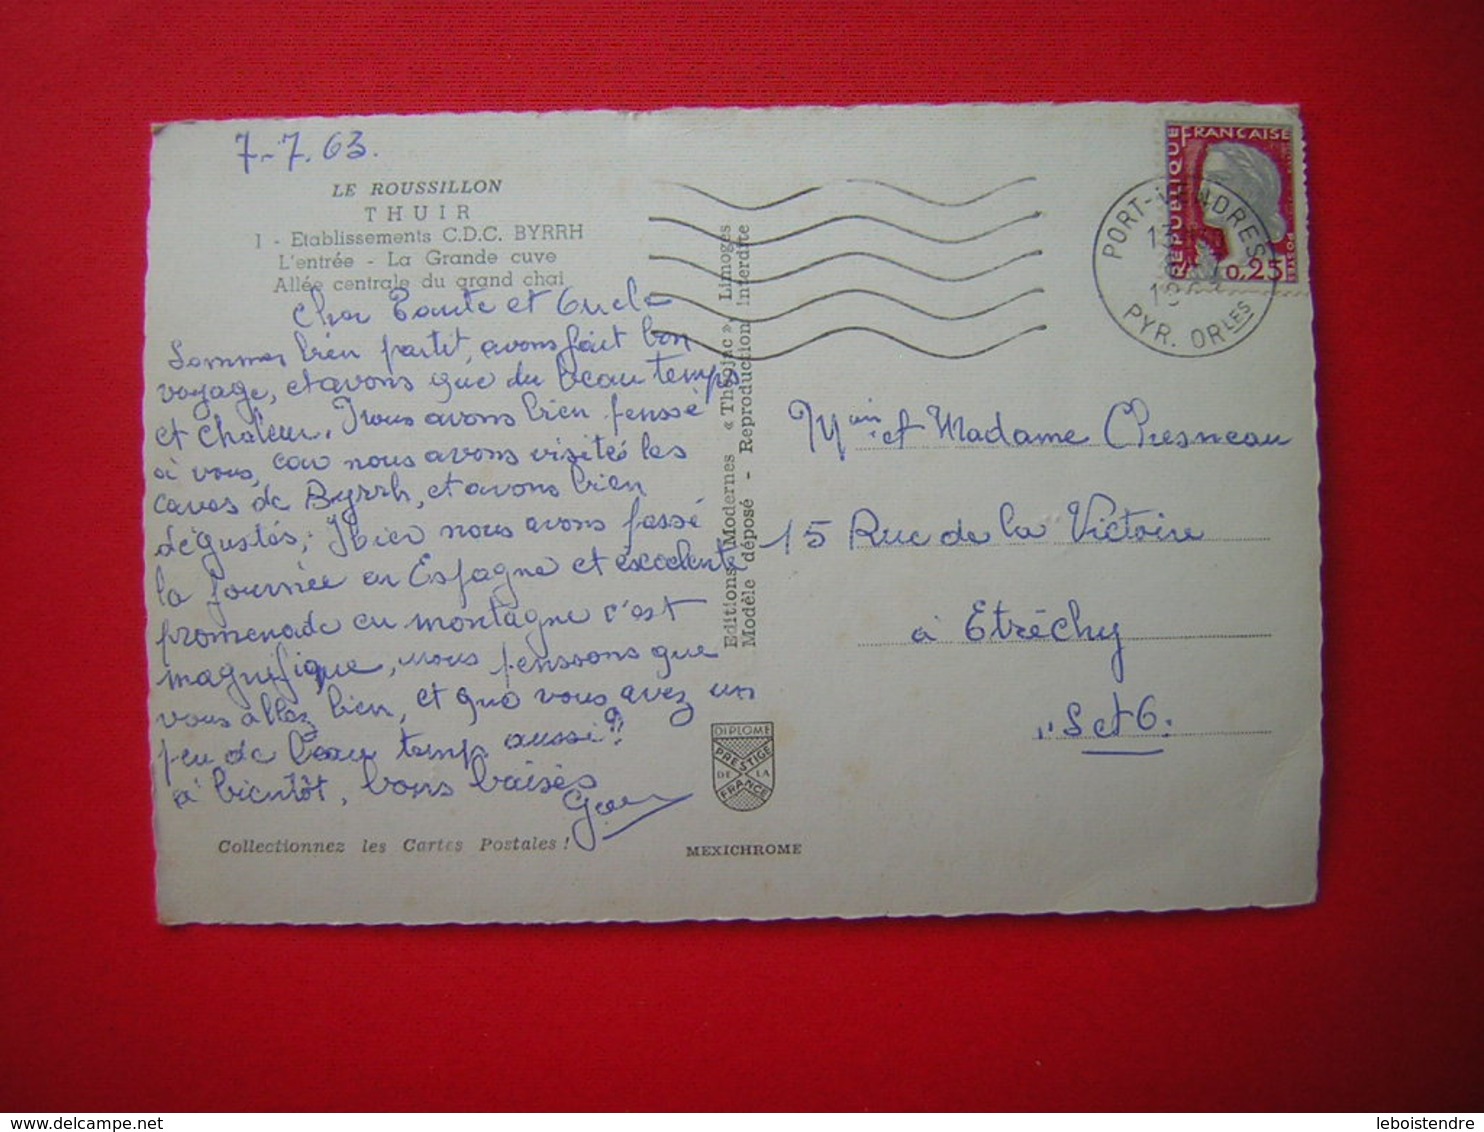 7-7.63.
LE ROUSSILLON
THUIR
1 - Etablissements C.D.C. BYRRH
L'entrée - La Grande cuve
Allée centrale du grand chai
Cher Tante et Oncle
Sommes bien partit, avons fait bon
voyage, et avons que du beau temps
et chaleur. Nous avons bien penssé
à vous, car nous avons visités les
caves de Byrrh, et avons bien
dégustés; Hier nous avons passé
la journée en Espagne et excelente
promenade en montagne c'est
magnifique, nous penssons que
vous allez bien, et que vous avez un
peu de beau temp aussi?
à bientôt, bons baisés
Collectionnez les Cartes Postales !
Editions Modernes « Théojac », Limoges
Modèle déposé - Reproduction interdite
DIPLOME
PRESTIGE
DE LA
FRANCE
MEXICHROME
REPUBLIQUE FRANÇAISE
POSTES
0,25
PORT-VENDRES
PYR. ORLES
et Madame Chesneau
15 Rue de la Victoire
à Etréchy
"S et O.
leboistendre